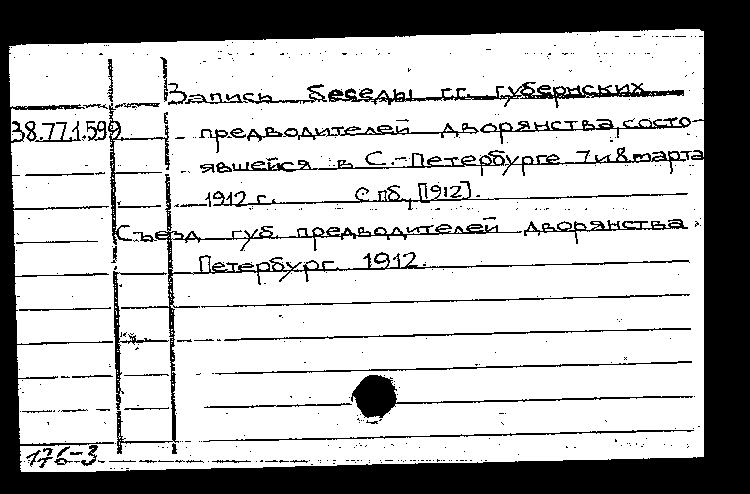 Запись беседы г.г. губернских
38.77.1.599 предводителей дворянства, состо-
явшейся в С.-Петербурге 7 и 8 марта
1912 г. Спб, [1912].
Съезд губ. предводителей дворянства.
Петербург. 1912.
176-3